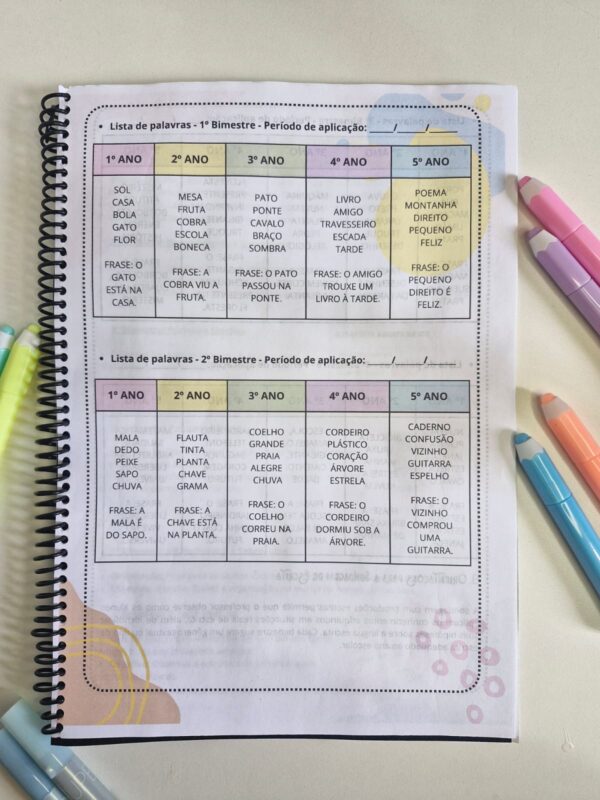 • Lista de palavras - 1º Bimestre - Período de aplicação: _____/______/_____
1º ANO 2º ANO 3º ANO 4º ANO 5º ANO
SOL
CASA
BOLA
GATO
FLOR
FRASE: O
GATO
ESTÁ NA
CASA.
MESA
FRUTA
COBRA
ESCOLA
BONECA
FRASE: A
COBRA VIU A
FRUTA.
PATO
PONTE
CAVALO
BRAÇO
SOMBRA
FRASE: O PATO
PASSOU NA
PONTE.
LIVRO
AMIGO
TRAVESSEIRO
ESCADA
TARDE
FRASE: O AMIGO
TROUXE UM
LIVRO À TARDE.
POEMA
MONTANHA
DIREITO
PEQUENO
FELIZ
FRASE: O
PEQUENO
DIREITO É
FELIZ.
• Lista de palavras - 2º Bimestre - Período de aplicação: _____/______/_____
1º ANO 2º ANO 3º ANO 4º ANO 5º ANO
MALA
DEDO
PEIXE
SAPO
CHUVA
FRASE: A
MALA É
DO SAPO.
FLAUTA
TINTA
PLANTA
CHAVE
GRAMA
FRASE: A
CHAVE ESTÁ
NA PLANTA.
COELHO
GRANDE
PRAIA
ALEGRE
CHUVA
FRASE: O
COELHO
CORREU NA
PRAIA.
CORDEIRO
PLÁSTICO
CORAÇÃO
ÁRVORE
ESTRELA
FRASE: O
CORDEIRO
DORMIU SOB A
ÁRVORE.
CADERNO
CONFUSÃO
VIZINHO
GUITARRA
ESPELHO
FRASE: O
VIZINHO
COMPROU
UMA
GUITARRA.